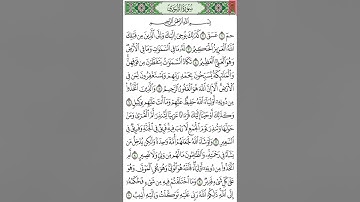 سُورَةُ الشُّورَىٰ
بِسْمِ اللَّهِ الرَّحْمَٰنِ الرَّحِيمِ
حمٓ ١ عٓسٓقٓ ٢ كَذَٰلِكَ يُوحِىٓ إِلَيْكَ وَإِلَى ٱلَّذِينَ مِن قَبْلِكَ
ٱللَّهُ ٱلْعَزِيزُ ٱلْحَكِيمُ ٣ لَهُۥ مَا فِى ٱلسَّمَٰوَٰتِ وَمَا فِى ٱلْأَرْضِ
وَهُوَ ٱلْعَلِىُّ ٱلْعَظِيمُ ٤ تَكَادُ ٱلسَّمَٰوَٰتُ يَتَفَطَّرْنَ مِن فَوْقِهِنَّ
وَٱلْمَلَٰٓئِكَةُ يُسَبِّحُونَ بِحَمْدِ رَبِّهِمْ وَيَسْتَغْفِرُونَ لِمَن فِى
ٱلْأَرْضِ أَلَآ إِنَّ ٱللَّهَ هُوَ ٱلْغَفُورُ ٱلرَّحِيمُ ٥ وَٱلَّذِينَ ٱتَّخَذُوا۟
مِن دُونِهِۦٓ أَوْلِيَآءَ ٱللَّهُ حَفِيظٌ عَلَيْهِمْ وَمَآ أَنتَ عَلَيْهِم بِوَكِيلٍ ٦
وَكَذَٰلِكَ أَوْحَيْنَآ إِلَيْكَ قُرْءَانًا عَرَبِيًّا لِّتُنذِرَ أُمَّ ٱلْقُرَىٰ وَمَنْ
حَوْلَهَا وَتُنذِرَ يَوْمَ ٱلْجَمْعِ لَا رَيْبَ فِيهِ فَرِيقٌ فِى ٱلْجَنَّةِ وَفَرِيقٌ فِى
ٱلسَّعِيرِ ٧ وَلَوْ شَآءَ ٱللَّهُ لَجَعَلَهُمْ أُمَّةً وَٰحِدَةً وَلَٰكِن يُدْخِلُ مَن
يَشَآءُ فِى رَحْمَتِهِۦ وَٱلظَّٰلِمُونَ مَا لَهُم مِّن وَلِىٍّ وَلَا نَصِيرٍ ٨ أَمِ
ٱتَّخَذُوا۟ مِن دُونِهِۦٓ أَوْلِيَآءَ فَٱللَّهُ هُوَ ٱلْوَلِىُّ وَهُوَ يُحْىِ ٱلْمَوْتَىٰ وَهُوَ
عَلَىٰ كُلِّ شَىْءٍ قَدِيرٌ ٩ وَمَا ٱخْتَلَفْتُمْ فِيهِ مِن شَىْءٍ فَحُكْمُهُۥٓ
إِلَى ٱللَّهِ ذَٰلِكُمُ ٱللَّهُ رَبِّى عَلَيْهِ تَوَكَّلْتُ وَإِلَيْهِ أُنِيبُ ١٠